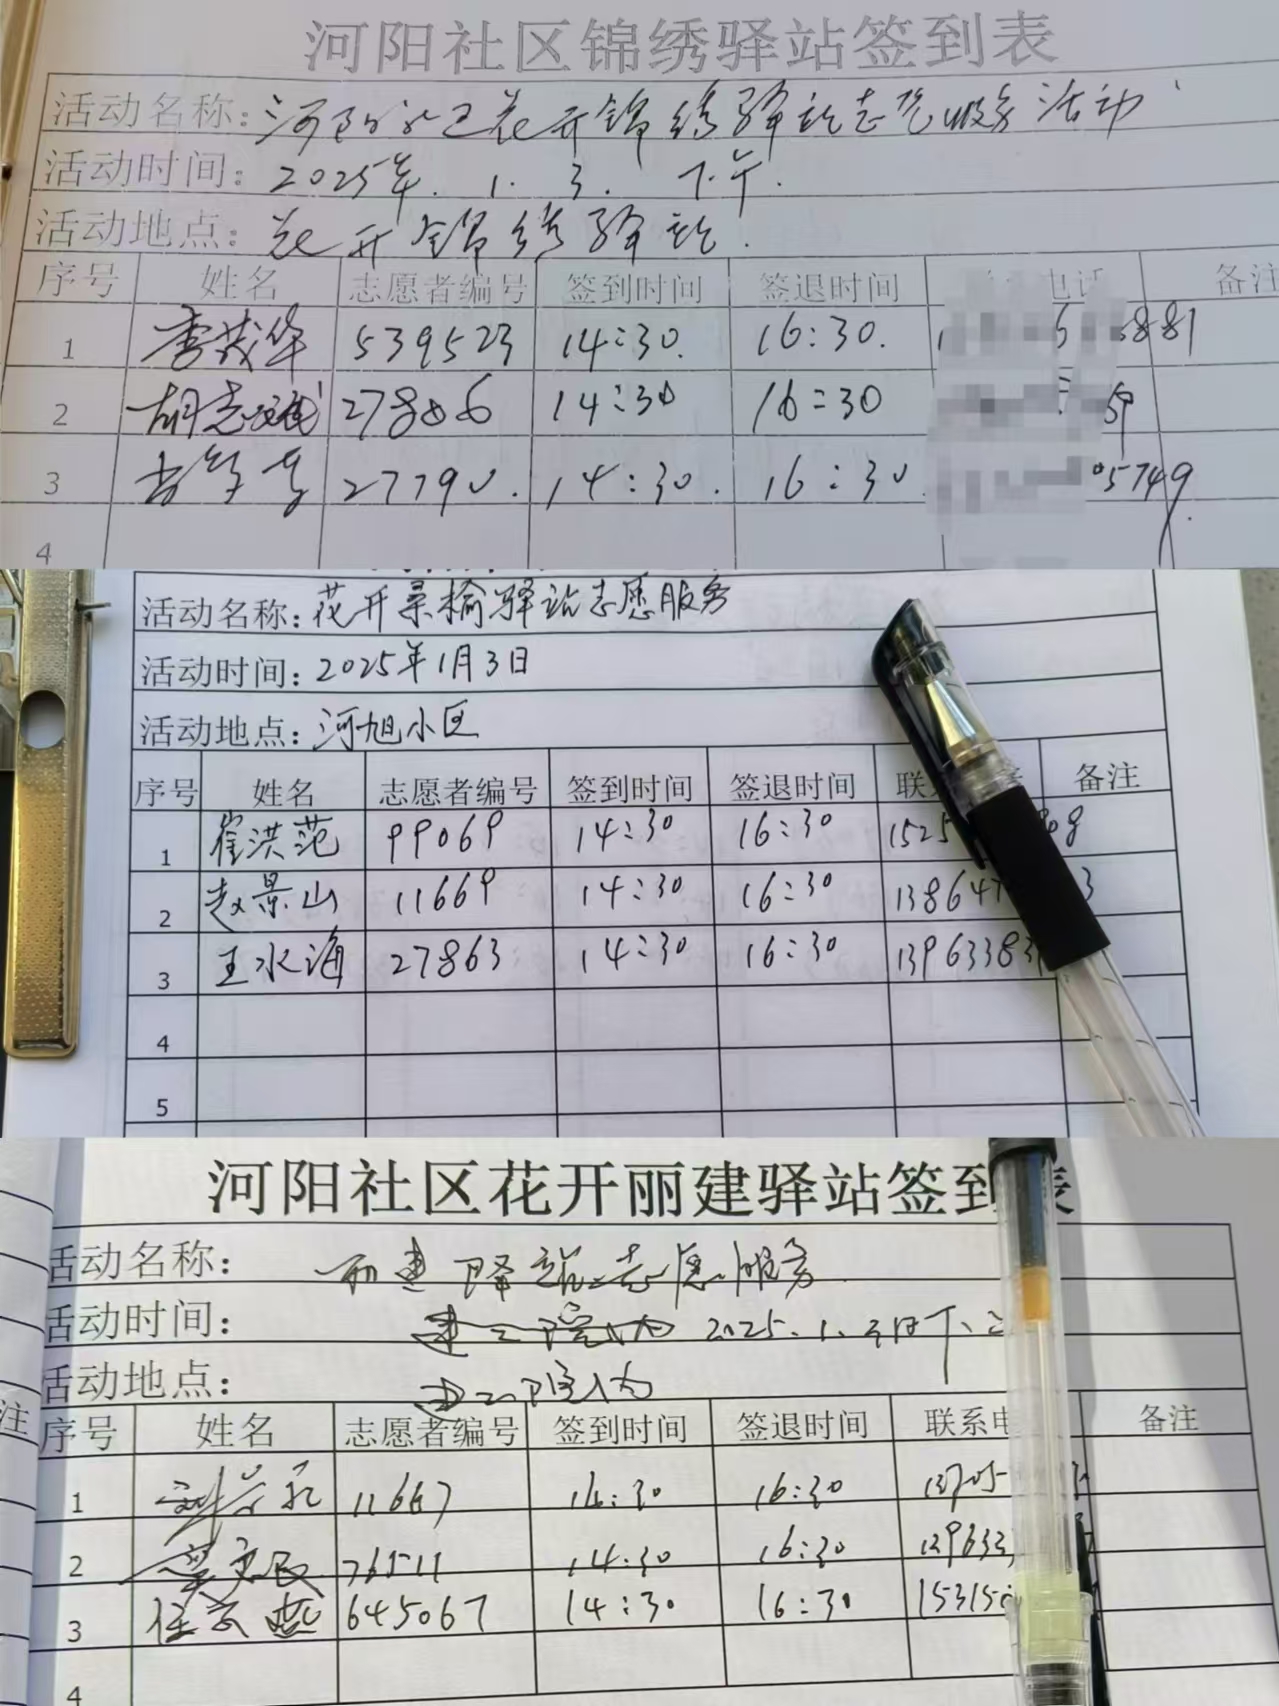 河阳社区锦绣驿站签到表
活动名称：河阳社区花开锦绣驿站志愿服务活动
活动时间：2025年.1.3.下午.
活动地点：花开锦绣驿站.
序号 姓名 志愿者编号 签到时间 签退时间 电话 备注
1 李茂华 539523 14:30. 16:30. 881
2 胡志斌 27806 14:30 16:30 59
3 27790. 14:30. 16:30 05749.
4
活动名称：花开桑榆驿站志愿服务
活动时间：2025年1月3日
活动地点：河旭小区
序号 姓名 志愿者编号 签到时间 签退时间 联 备注
1 崔洪范 99069 14:30 16:30 1525 08
2 赵景山 11669 14:30 16:30 138647 3
3 王水海 27863 14:30 16:30 13963383
4
5
河阳社区花开丽建驿站签到表
活动名称： 丽建驿站志愿服务
活动时间： 2025.1.3日下午
活动地点： 建工院内
序号 姓名 志愿者编号 签到时间 签退时间 联系电 备注
1 11667 14:30 16:30 13705
2 76511 14:30 16:30 139633
3 任 燕 645067 14:30 16:30 15315
4